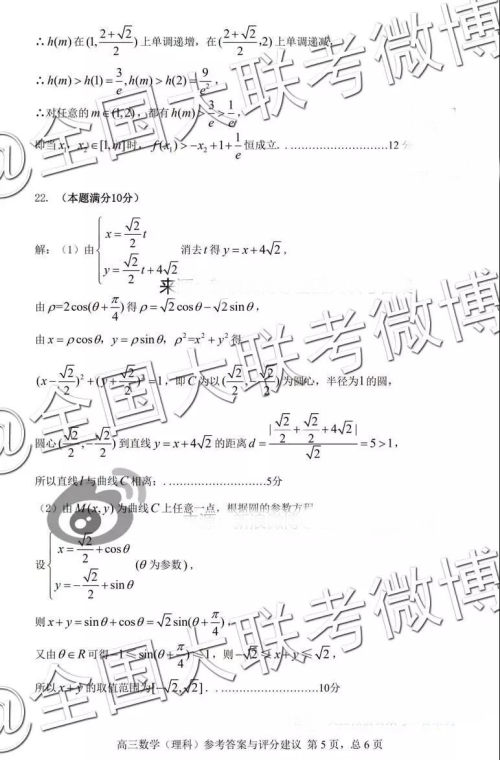 ∴ h(m) 在 (1, (2+√2)/2) 上单调递增，在((2+√2)/2, 2) 上单调递减，
∴ h(m) > h(1) = 3/e, h(m) > h(2) = 9/e²，
∴对任意的 m∈(1,2)，都有h(m) > 3/e > 1/e，
即当 x₁，x₂∈[1,m]时，f(x₁) > -x₂+1+1/e 恒成立. ………………………12
22.（本题满分10分）
解：（1）由{x=(√2/2)t
y=(√2/2)t+4√2 消去t得 y=x+4√2，
由 ρ=2cos(θ+π/4)得 ρ=√2cosθ-√2sinθ，
由 x=ρcosθ，y=ρsinθ，ρ²=x²+y² 得
(x-√2/2)²+(y+√2/2)²=1，即 C 为以(√2/2,-√2/2)为圆心，半径为1的圆，
圆心(√2/2,-√2/2)到直线 y=x+4√2 的距离 d=|√2/2+√2/2+4√2|/√2=5>1，
所以直线l与曲线C相离；………………………5分
（2）由M(x,y)为曲线C上任意一点，根据圆的参数方程
设{x=√2/2+cosθ
y=-√2/2+sinθ (θ为参数)，
则x+y=sinθ+cosθ=√2sin(θ+π/4)，
又由θ∈R可得-1≤sin(θ+π/4)≤1，则-√2≤x+y≤√2，
所以x+y的取值范围为[-√2,√2]. ………………………10分
高三数学（理科）参考答案与评分建议 第 5 页，总 6 页
@全国大联考微博
@全国大联考微博
@全国大联考微博